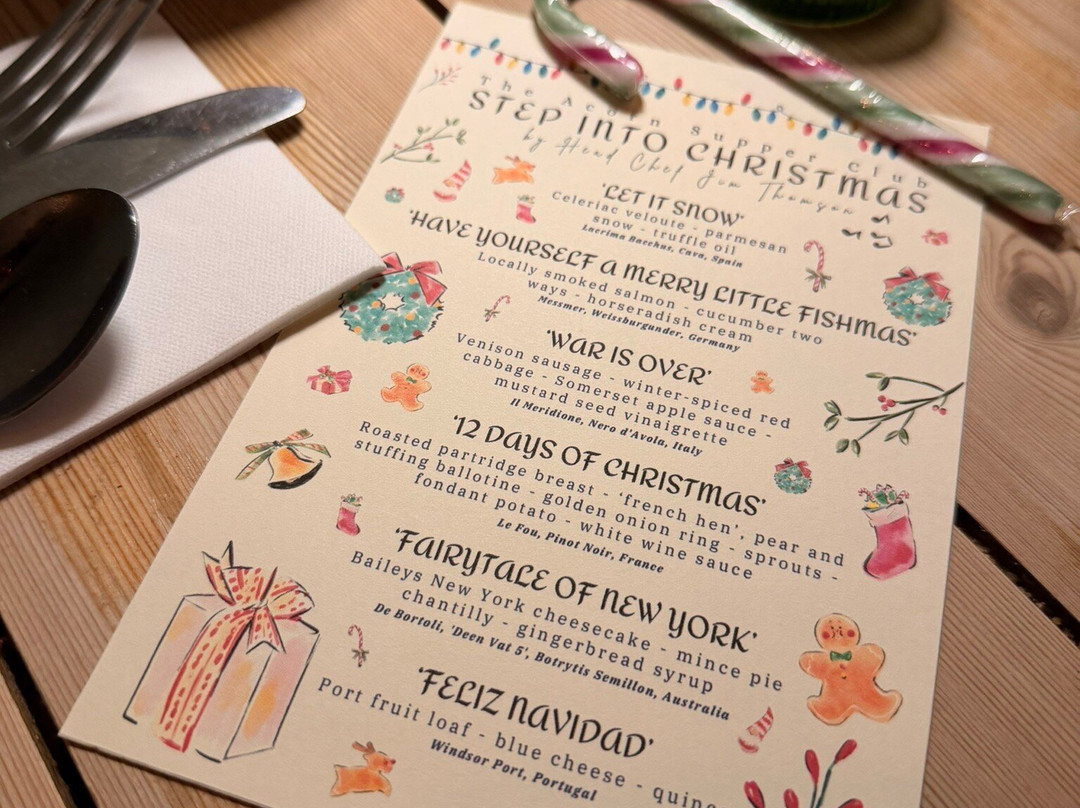 The Acorn Supper Club
STEP INTO CHRISTMAS
by Head Chef Jim Thomson
'LET IT SNOW'
Celeriac veloute - parmesan
snow - truffle oil
Lacrima Bacchus, Cava, Spain
'HAVE YOURSELF A MERRY LITTLE FISHMAS'
Locally smoked salmon - cucumber two
ways - horseradish cream
Messmer, Weissburgunder, Germany
'WAR IS OVER'
Venison sausage - winter-spiced red
cabbage - Somerset apple sauce -
mustard seed vinaigrette
Il Meridione, Nero d'Avola, Italy
'12 DAYS OF CHRISTMAS'
Roasted partridge breast - 'french hen', pear and
stuffing ballotine - golden onion ring - sprouts -
fondant potato - white wine sauce
Le Fou, Pinot Noir, France
'FAIRYTALE OF NEW YORK'
Baileys New York cheesecake - mince pie
chantilly - gingerbread syrup
De Bortoli, 'Deen Vat 5', Botrytis Semillon, Australia
'FELIZ NAVIDAD'
Port fruit loaf - blue cheese - quinc
Windsor Port, Portugal